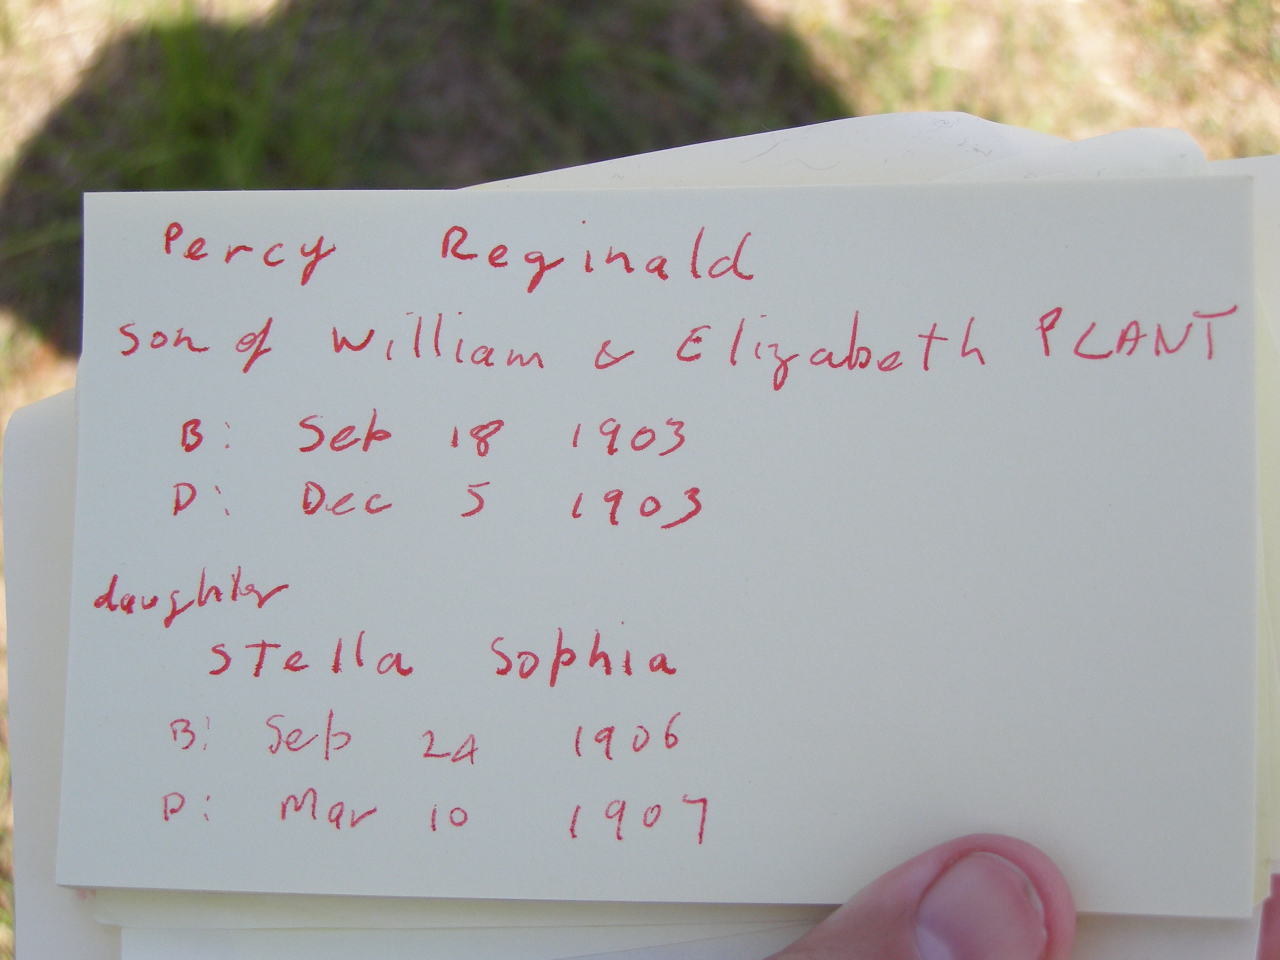 Percy Reginald
son of William & Elizabeth PLANT
B: Sep 18 1903
D: Dec 5 1903
daughter
Stella Sophia
B: Sep 24 1906
D: Mar 10 1907